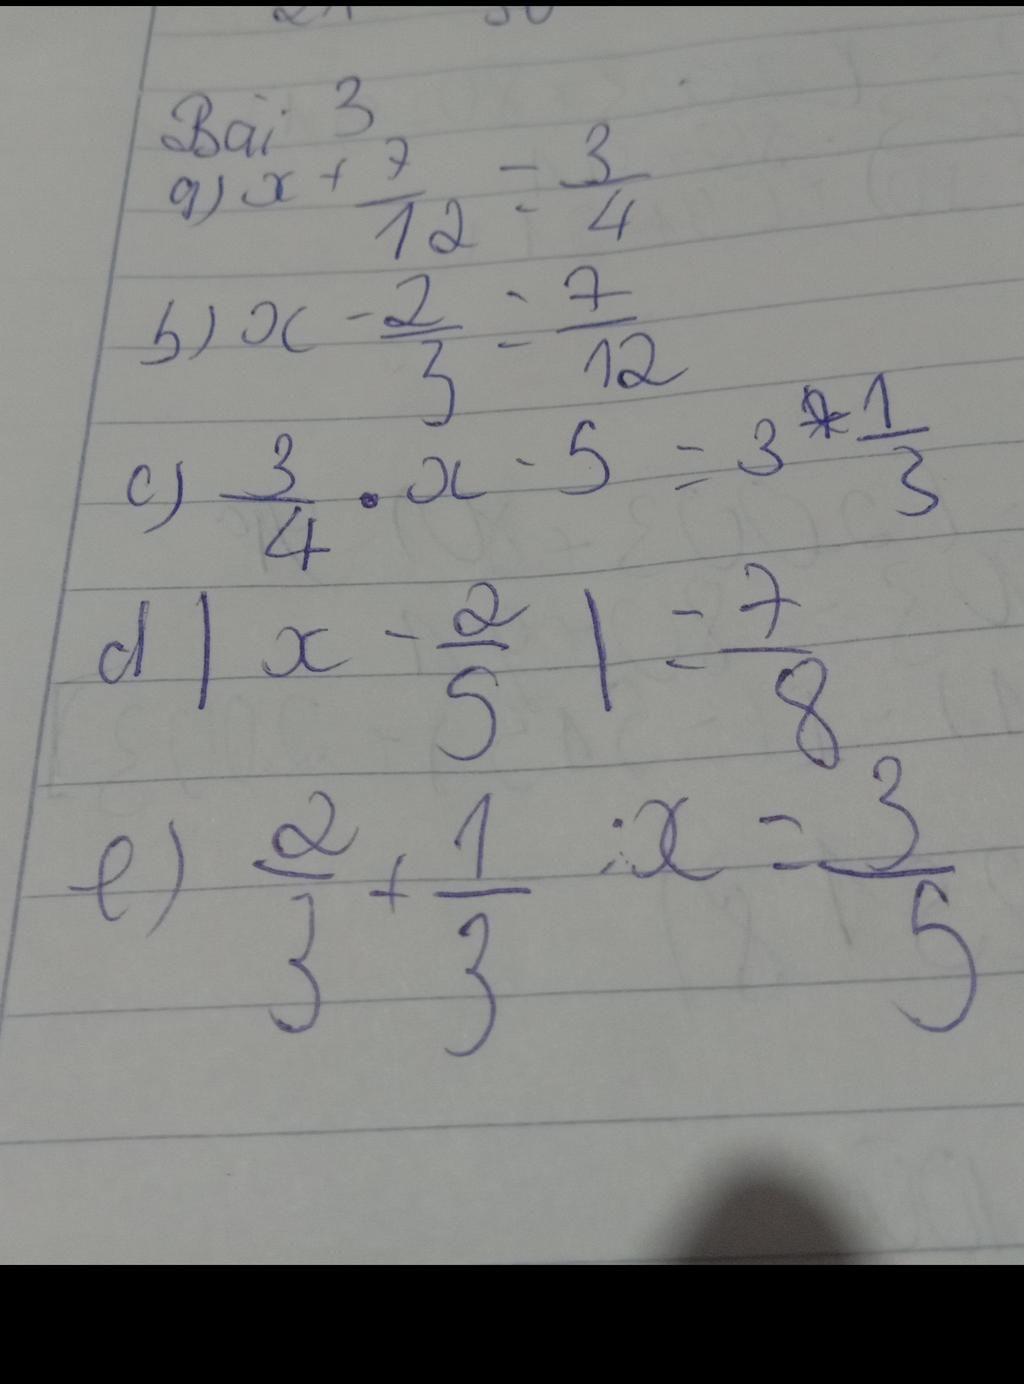 Bài 3
a) x + 7/12 = 3/4
b) x - 2/3 = 7/12
c) 3/4 . x - 5 = 3 1/3
d | x - 2/5 | = 7/8
e) 2/3 + 1/3 : x = 3/5